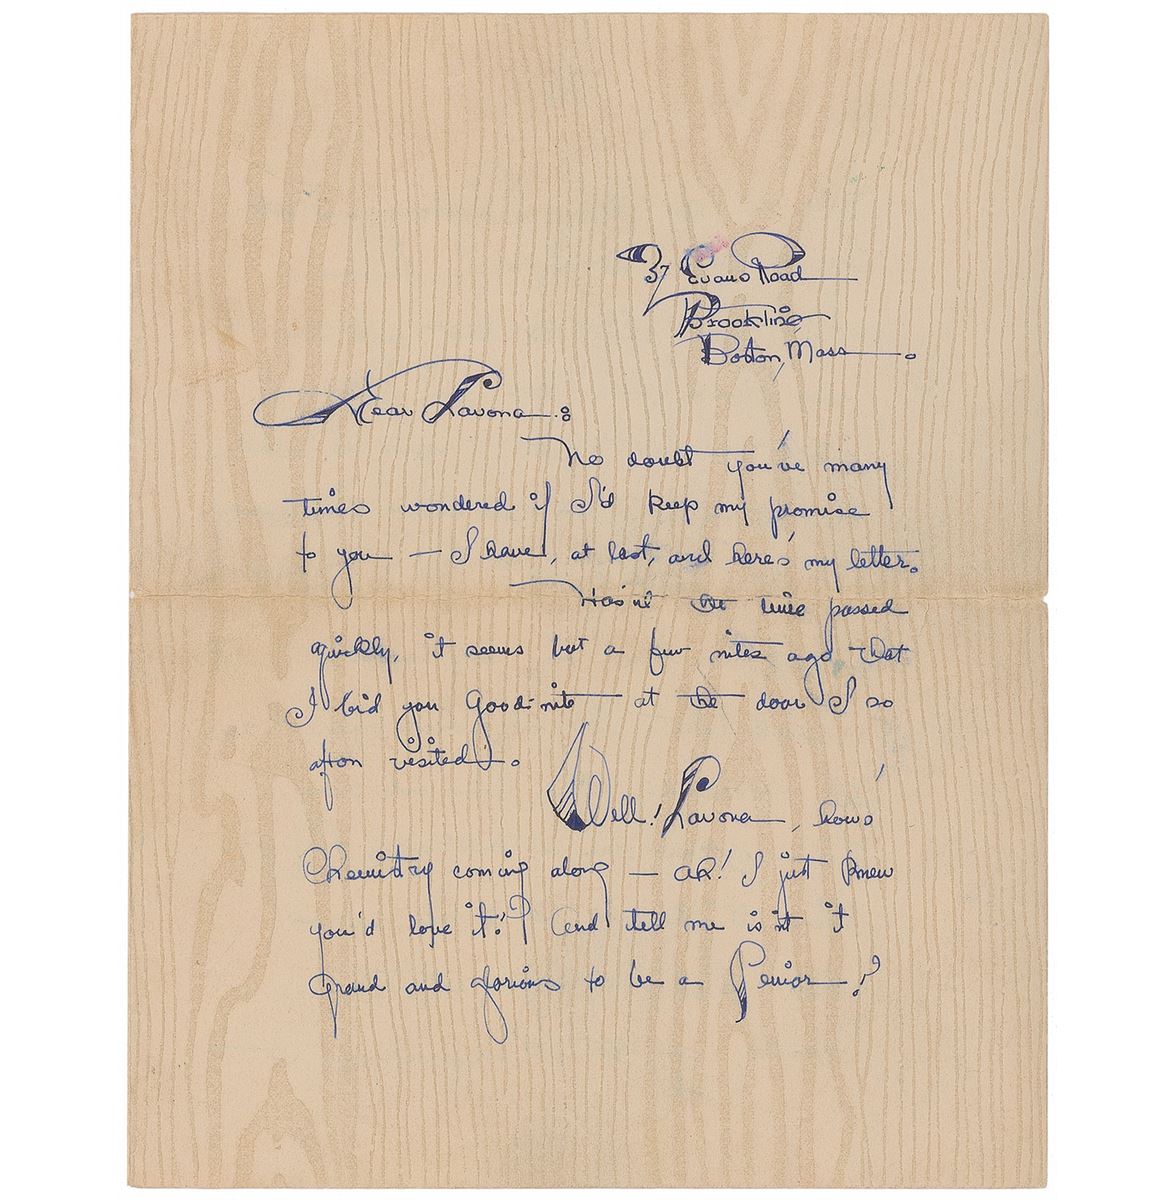 37 Evans Road
Brookline
Boston, Mass.
Dear Lavona:
No doubt you've many
times wondered if I'd keep my promise
to you — I have, at last, and here's my letter.
Has'nt the time passed
quickly, it seems but a few nites ago that
I bid you Good-nite at the door I so
afton visited.
Well! Lavona, how's
Chemistry coming along — ah! I just knew
you'd love it!? And tell me is'nt it
grand and glorious to be a Senior?